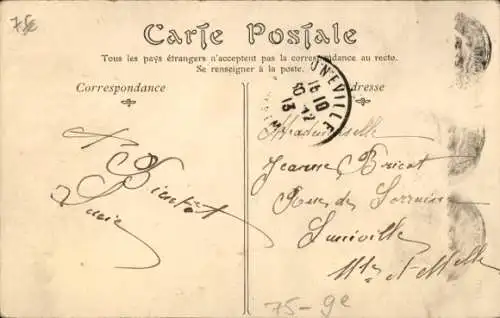 75c
Carte Postale
Tous les pays étrangers n'acceptent pas la correspondance au recto.
Se renseigner à la poste.
Correspondance
Adresse
UNEVILLE
15 10
12
13
A
Bientôt
Lucie
Mademoiselle
Jeanne Bricot
Rue de Lorraine
Lunéville
Mthe et Mlle
75-9e